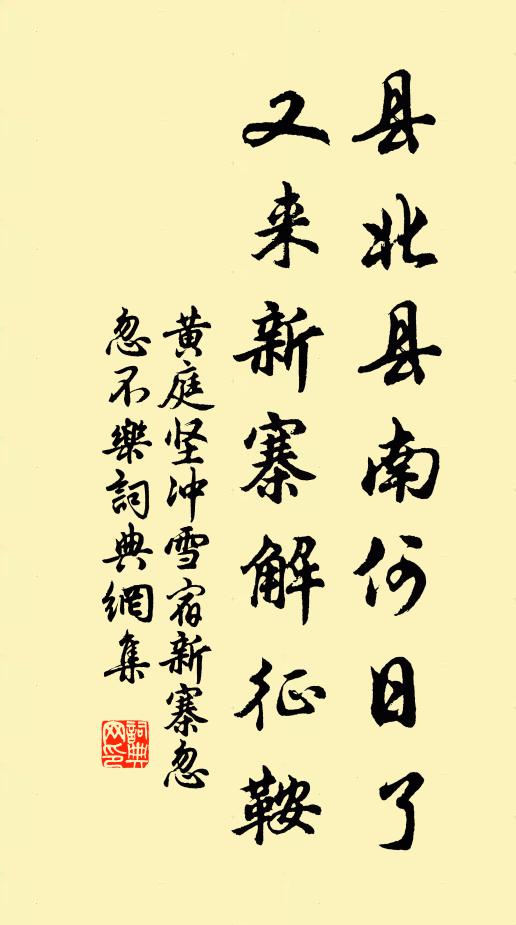 县北县南何日了
又来新寨解征鞍
黄庭坚冲雪宿新寨忽
忽不樂詞典網集
詞典
网印